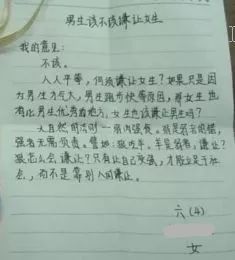 男生该不该谦让女生
我的意见：
不该。
人人平等，何须谦让女生？如果只是因
为男生力气大，男生跑步快等原因，那女生也
有比男生优秀的地方，女生也该谦让男生吗？
大自然的法则一 弱肉强食。弱是弱者的错，
强者无需负责。譬如：狼吃羊，羊是弱者，谦让？
狼怎么会谦让？只有让自己变强，才能立足于社
会，而不是靠别人间谦让。
六（4）
女